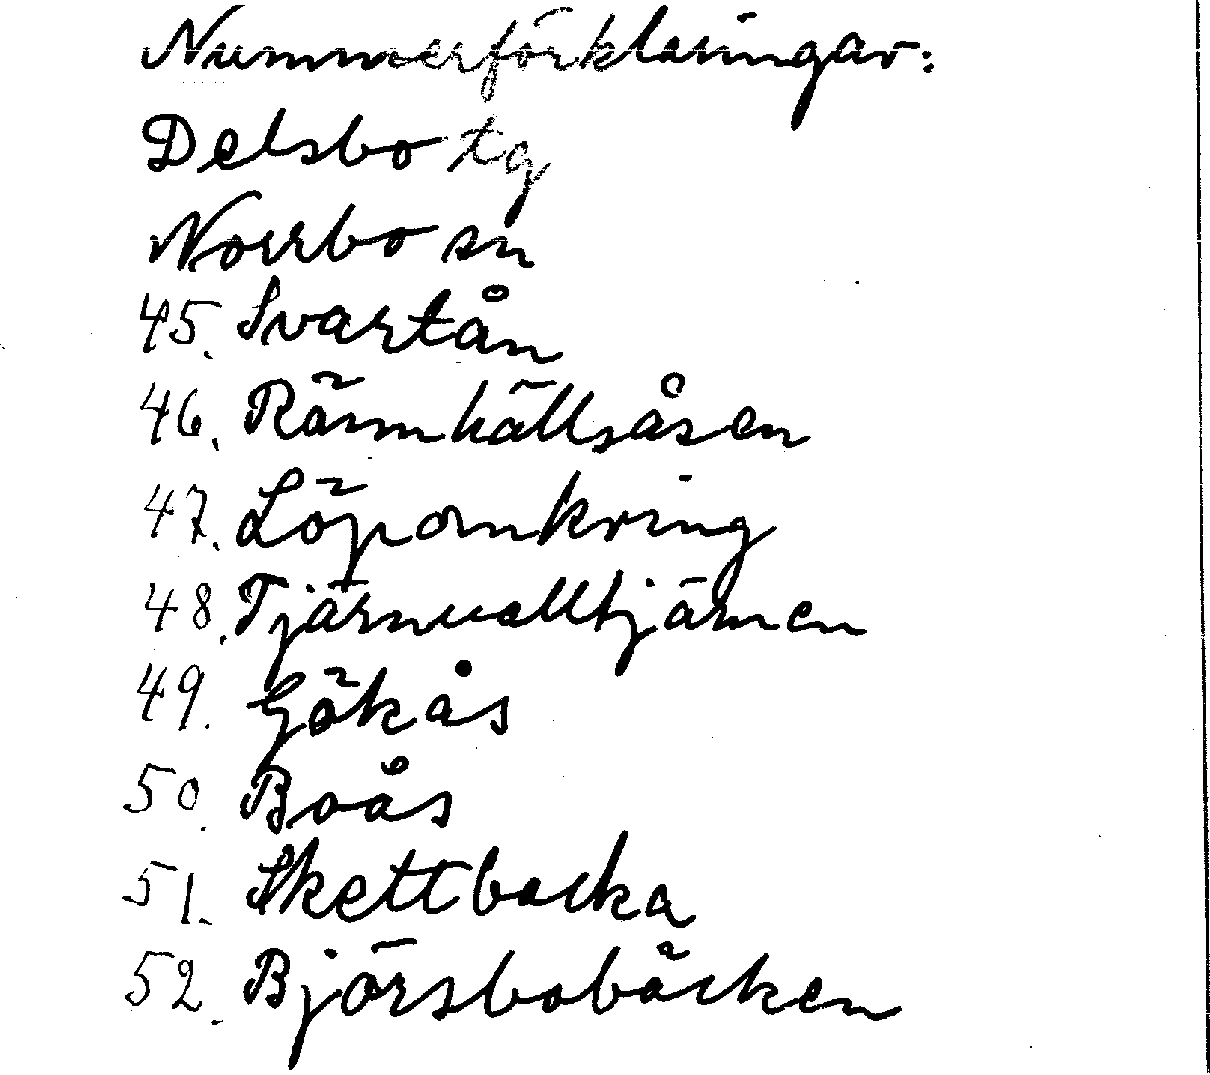 Nummerförklaringar:
Delsbo tg
Norrbo sn
45. Svartån
46. Rämnhällsåsen
47. Löpomkring
48. Tjärnvalltjärnen
49. Gökås
50. Boås
51. Skettbacka
52. Björsbobäcken